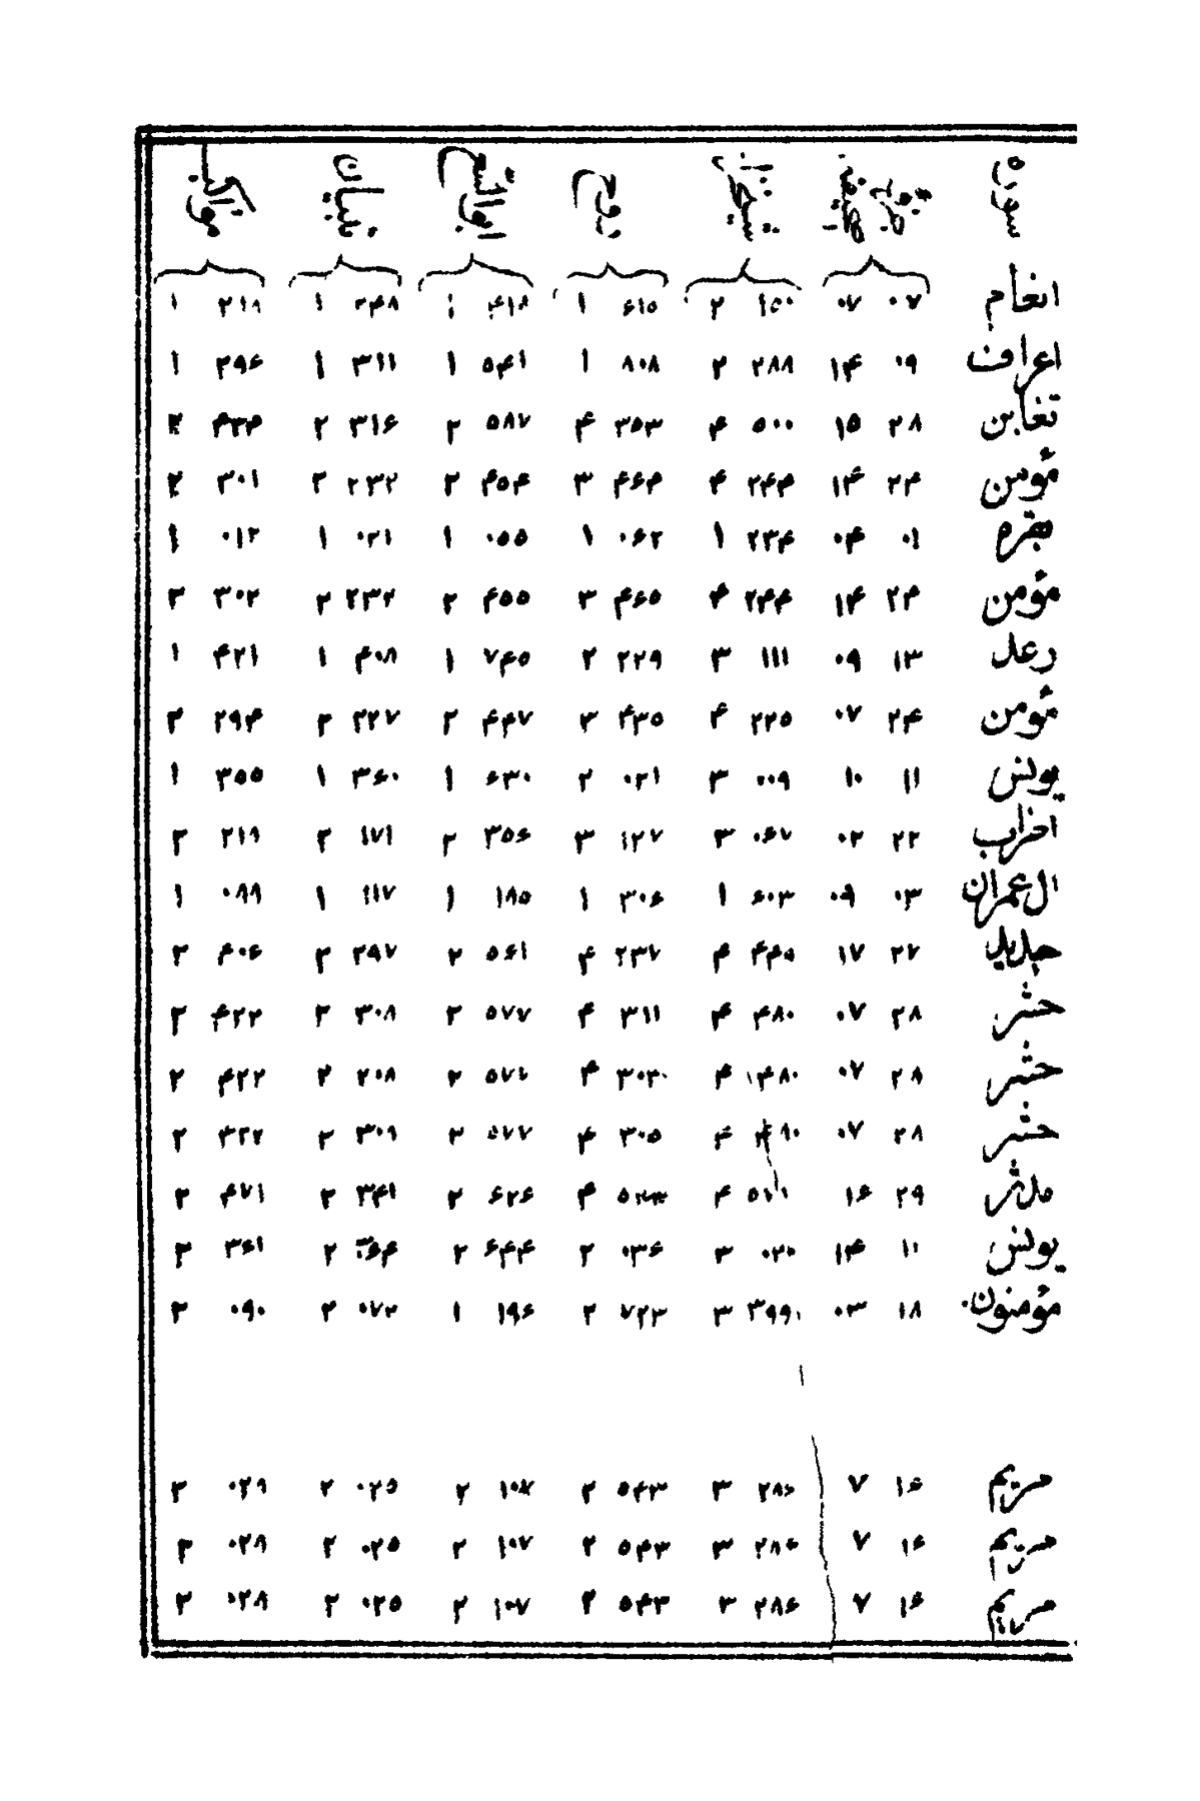 سوره جزء صفحه شیخزاده روح ابوالسعود تبیان مواکب
انعام ۰۷ ۰۷ ۱۵۰ ۲ ۶۱۵ ۱ ۴۱۶ ۱ ۲۴۸ ۱ ۲۱۸ ۱
اعراف ۰۹ ۱۴ ۲۸۸ ۲ ۸۰۸ ۱ ۵۴۱ ۱ ۳۱۱ ۱ ۲۹۶ ۱
تغابن ۲۸ ۱۵ ۵۰۰ ۴ ۳۵۳ ۴ ۵۸۷ ۲ ۳۱۶ ۲ ۴۳۴ ۲
مؤمن ۲۴ ۱۴ ۲۴۴ ۴ ۴۶۴ ۳ ۴۵۴ ۲ ۲۳۲ ۲ ۳۰۱ ۲
بقره ۰۱ ۰۴ ۲۳۴ ۱ ۰۶۲ ۱ ۰۵۵ ۱ ۰۲۱ ۱ ۰۱۲ ۱
مؤمن ۲۴ ۱۴ ۲۴۴ ۴ ۴۶۵ ۳ ۴۵۵ ۲ ۲۳۲ ۲ ۳۰۲ ۲
رعد ۱۳ ۰۹ ۱۱۱ ۳ ۲۲۹ ۲ ۷۴۵ ۱ ۴۰۸ ۱ ۴۲۱ ۱
مؤمن ۲۴ ۰۷ ۲۲۵ ۴ ۴۳۵ ۳ ۴۴۷ ۲ ۲۲۷ ۲ ۲۹۴ ۲
یونس ۱۱ ۱۰ ۰۰۹ ۳ ۰۲۱ ۲ ۶۳۰ ۱ ۳۶۰ ۱ ۳۵۵ ۱
احزاب ۲۲ ۰۲ ۰۶۷ ۳ ۱۲۷ ۳ ۳۵۶ ۲ ۱۷۱ ۲ ۲۱۹ ۲
ال عمران ۰۳ ۰۹ ۶۰۳ ۱ ۳۰۶ ۱ ۱۸۵ ۱ ۱۱۷ ۱ ۰۸۹ ۱
حدید ۲۷ ۱۷ ۴۴۵ ۴ ۲۳۷ ۴ ۵۶۱ ۲ ۲۹۷ ۲ ۴۰۶ ۲
حشر ۲۸ ۰۷ ۴۸۰ ۴ ۳۱۱ ۴ ۵۷۷ ۲ ۳۰۸ ۲ ۴۲۲ ۲
حشر ۲۸ ۰۷ ۴۸۰ ۴ ۳۰۳ ۴ ۵۷۶ ۲ ۲۰۸ ۲ ۴۲۲ ۲
حشر ۲۸ ۰۷ ۴ ۳۰۵ ۴ ۵۷۷ ۲ ۳۰۹ ۲ ۴۲۲ ۲
مدثر ۲۹ ۱۶ ۴ ۴ ۶۲۶ ۲ ۳۴۱ ۲ ۴۷۱ ۲
یونس ۱۱ ۱۴ ۰۲۰ ۳ ۰۳۶ ۲ ۶۴۴ ۲ ۳۶۴ ۲ ۳۶۱ ۲
مؤمنون ۱۸ ۰۳ ۳۹۹ ۳ ۷۲۳ ۲ ۱۹۶ ۱ ۰۷۲ ۲ ۰۹۰ ۲
مریم ۱۶ ۷ ۲۸۶ ۳ ۵۴۳ ۲ ۱۰۷ ۲ ۰۲۵ ۲ ۰۲۹ ۲
مریم ۱۶ ۷ ۲۸۶ ۳ ۵۴۳ ۲ ۱۰۷ ۲ ۰۲۵ ۲ ۰۲۸ ۲
مریم ۱۶ ۷ ۲۸۶ ۳ ۵۴۳ ۲ ۱۰۷ ۲ ۰۲۵ ۲ ۰۲۸ ۲